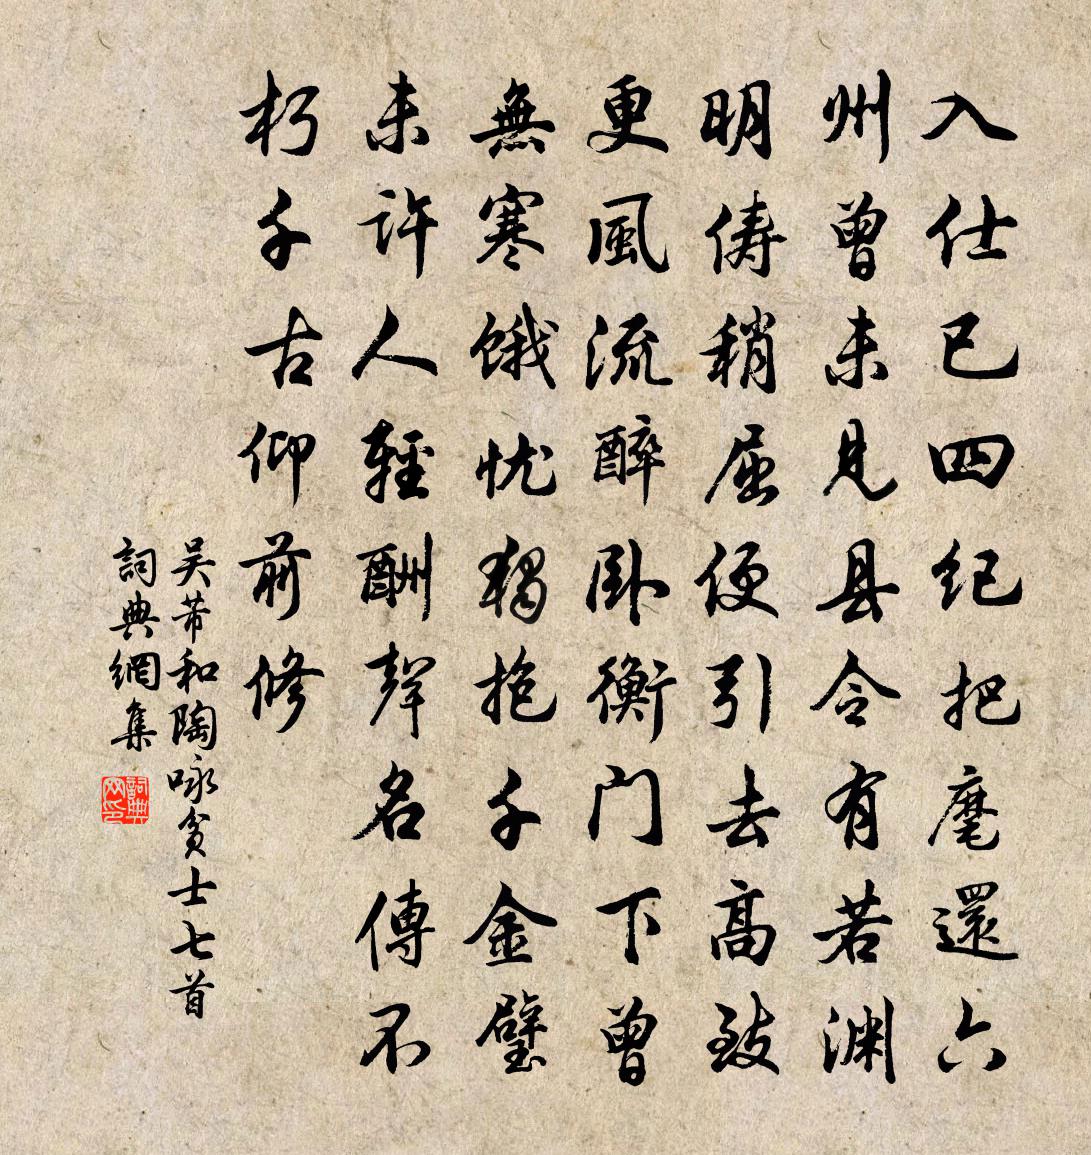 入仕已四纪把麾還六
州曾未见县令有若渊
明俦稍屈便引去高致
更風流醉卧衡门下曾
無寒饿忧獨抱千金璧
未许人輕酬聲名傳不
朽千古仰前修
吴芾和陶咏贫士七首
詞典網集
詞典网印